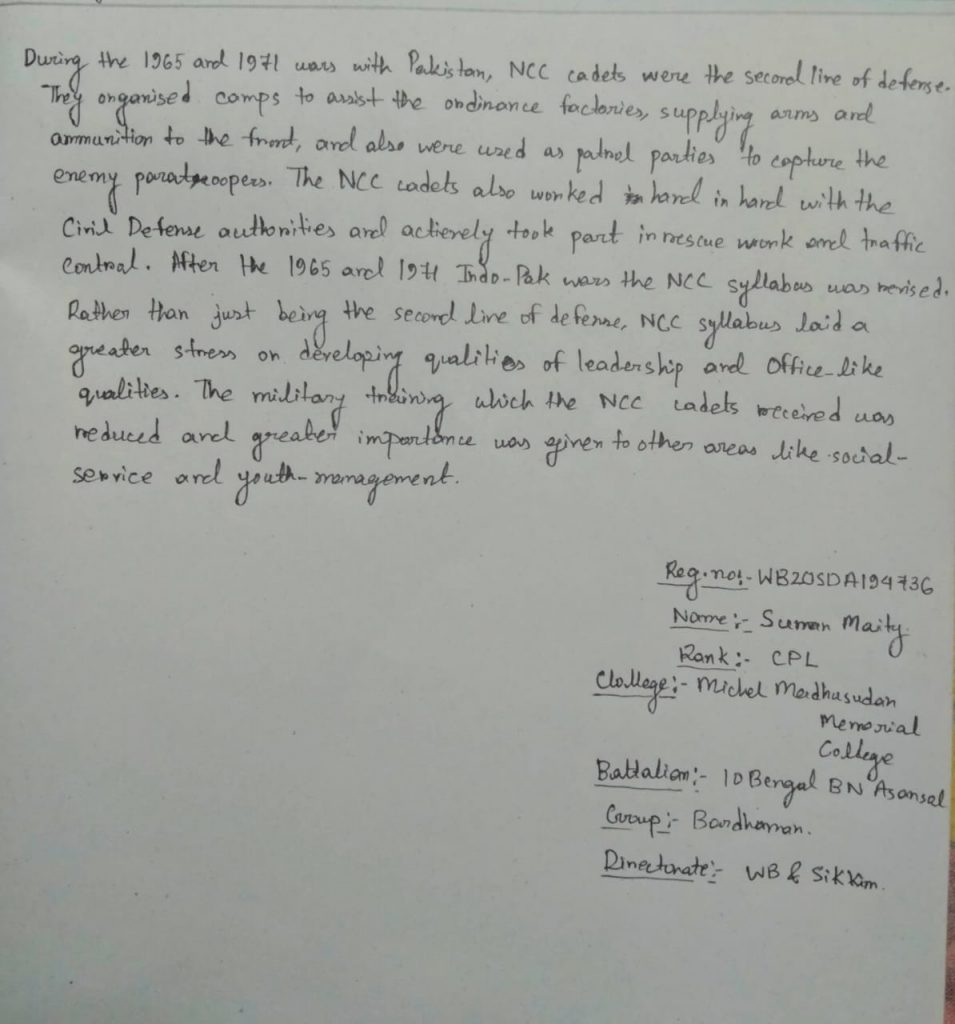 During the 1965 and 1971 wars with Pakistan, NCC cadets were the second line of defense.
They organised camps to assist the ordinance factories, supplying arms and
ammunition to the front, and also were used as patrol parties to capture the
enemy paratroopers. The NCC cadets also worked hand in hand with the
Civil Defense authorities and actively took part in rescue work and traffic
control. After the 1965 and 1971 Indo-Pak wars the NCC syllabus was revised.
Rather than just being the second line of defense, NCC syllabus laid a
greater stress on developing qualities of leadership and Office-like
qualities. The military training which the NCC cadets received was
reduced and greater importance was given to other areas like social-
service and youth-management.
Reg.no:- WB20SDA194736
Name:- Suman Maity.
Rank:- CPL
Clollege:- Michel Madhusudan
Memorial
College
Battalion:- 10 Bengal BN Asansol
Group:- Bardhaman.
Directorate:- WB & Sikkim.